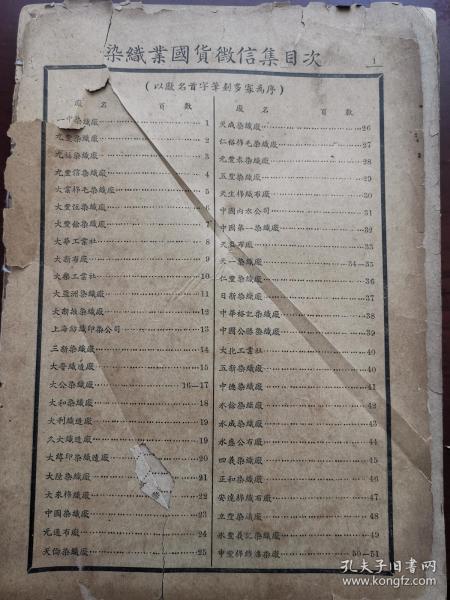 染織業國貨徵信集目次
1
(以廠名首字筆劃多寡為序)
廠名 頁數
一中染織廠 1
元豐染織廠 2
染織廠 3
九豐信染織廠 4
大棉毛染織廠 5
大豐恆染織廠 6
大豐餘染織廠 7
大華工業社 8
大新布廠 9
大樂工業社 10
大亞洲染織廠 11
大染織廠 12
上海紡織印染公司 13
三新染織廠 14
大晉織造廠 15
大公染織廠 16—17
大和染織廠 18
大利織造廠 19
久大織造廠 19
大綸印染織造廠 20
大陸染織廠 21
大來棉織廠 22
中國染織廠 23
元通布廠 24
天倫染織廠 25
廠名 頁數
天成染織廠 26
仁裕棉毛染織廠 27
元豐泰染織廠 28
五豐染織廠 29
天生棉織布廠 30
中國內衣公司 31
中國第一染織廠 32
布廠 33
天一染織廠 34—35
仁豐染織廠 36
日新染織廠 37
中華裕記染織廠 38
中國公勝染織廠 39
大化工業社 40
五新染織廠 40
中德染織廠 41
永餘染織廠 42
永成染織廠 43
永盛公布廠 44
四義染織廠 45
正和染織廠 46
安達棉織布廠 47
立豐染織廠 48
永豐義記染織廠 49
申豐棉織染廠 50—51
孔夫子旧书网